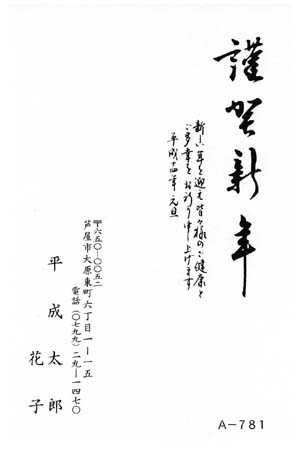 謹賀新年
新しい年を迎え皆々様のご健康と
ご多幸をお祈り申し上げます
平成十四年 元旦
〒六五〇-〇〇五二
芦屋市大原東町六丁目一-一五
電話(〇七九九)二九-一四七〇
平成太郎
花子
A-781